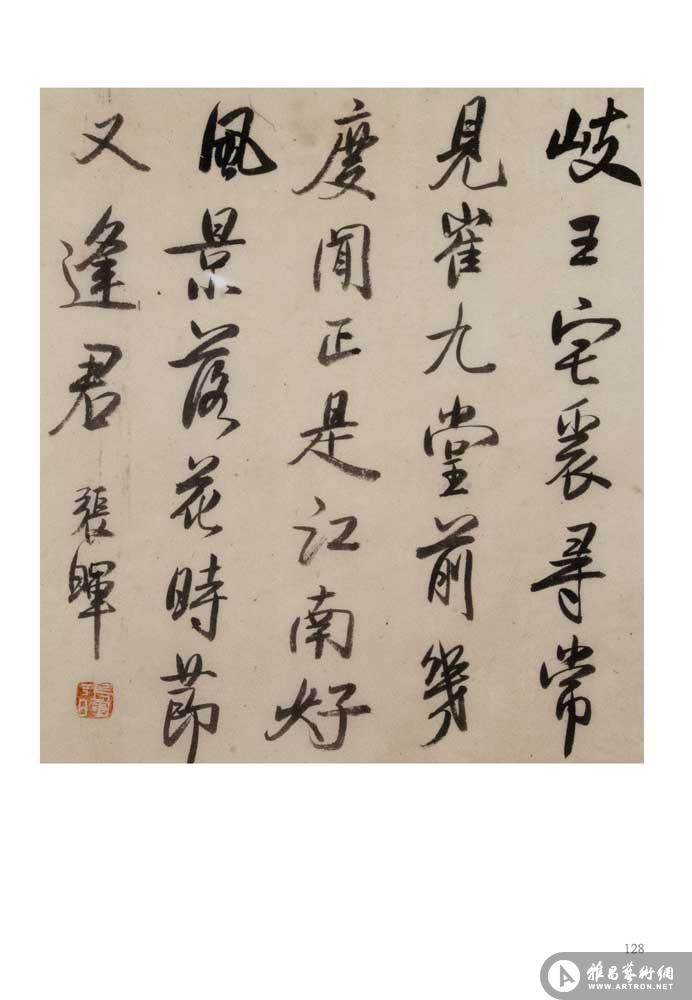 岐王宅裏尋常
見崔九堂前幾
度聞正是江南好
風景落花時節
又逢君
張暉
128
雅昌藝術網
WWW.ARTRON.NET